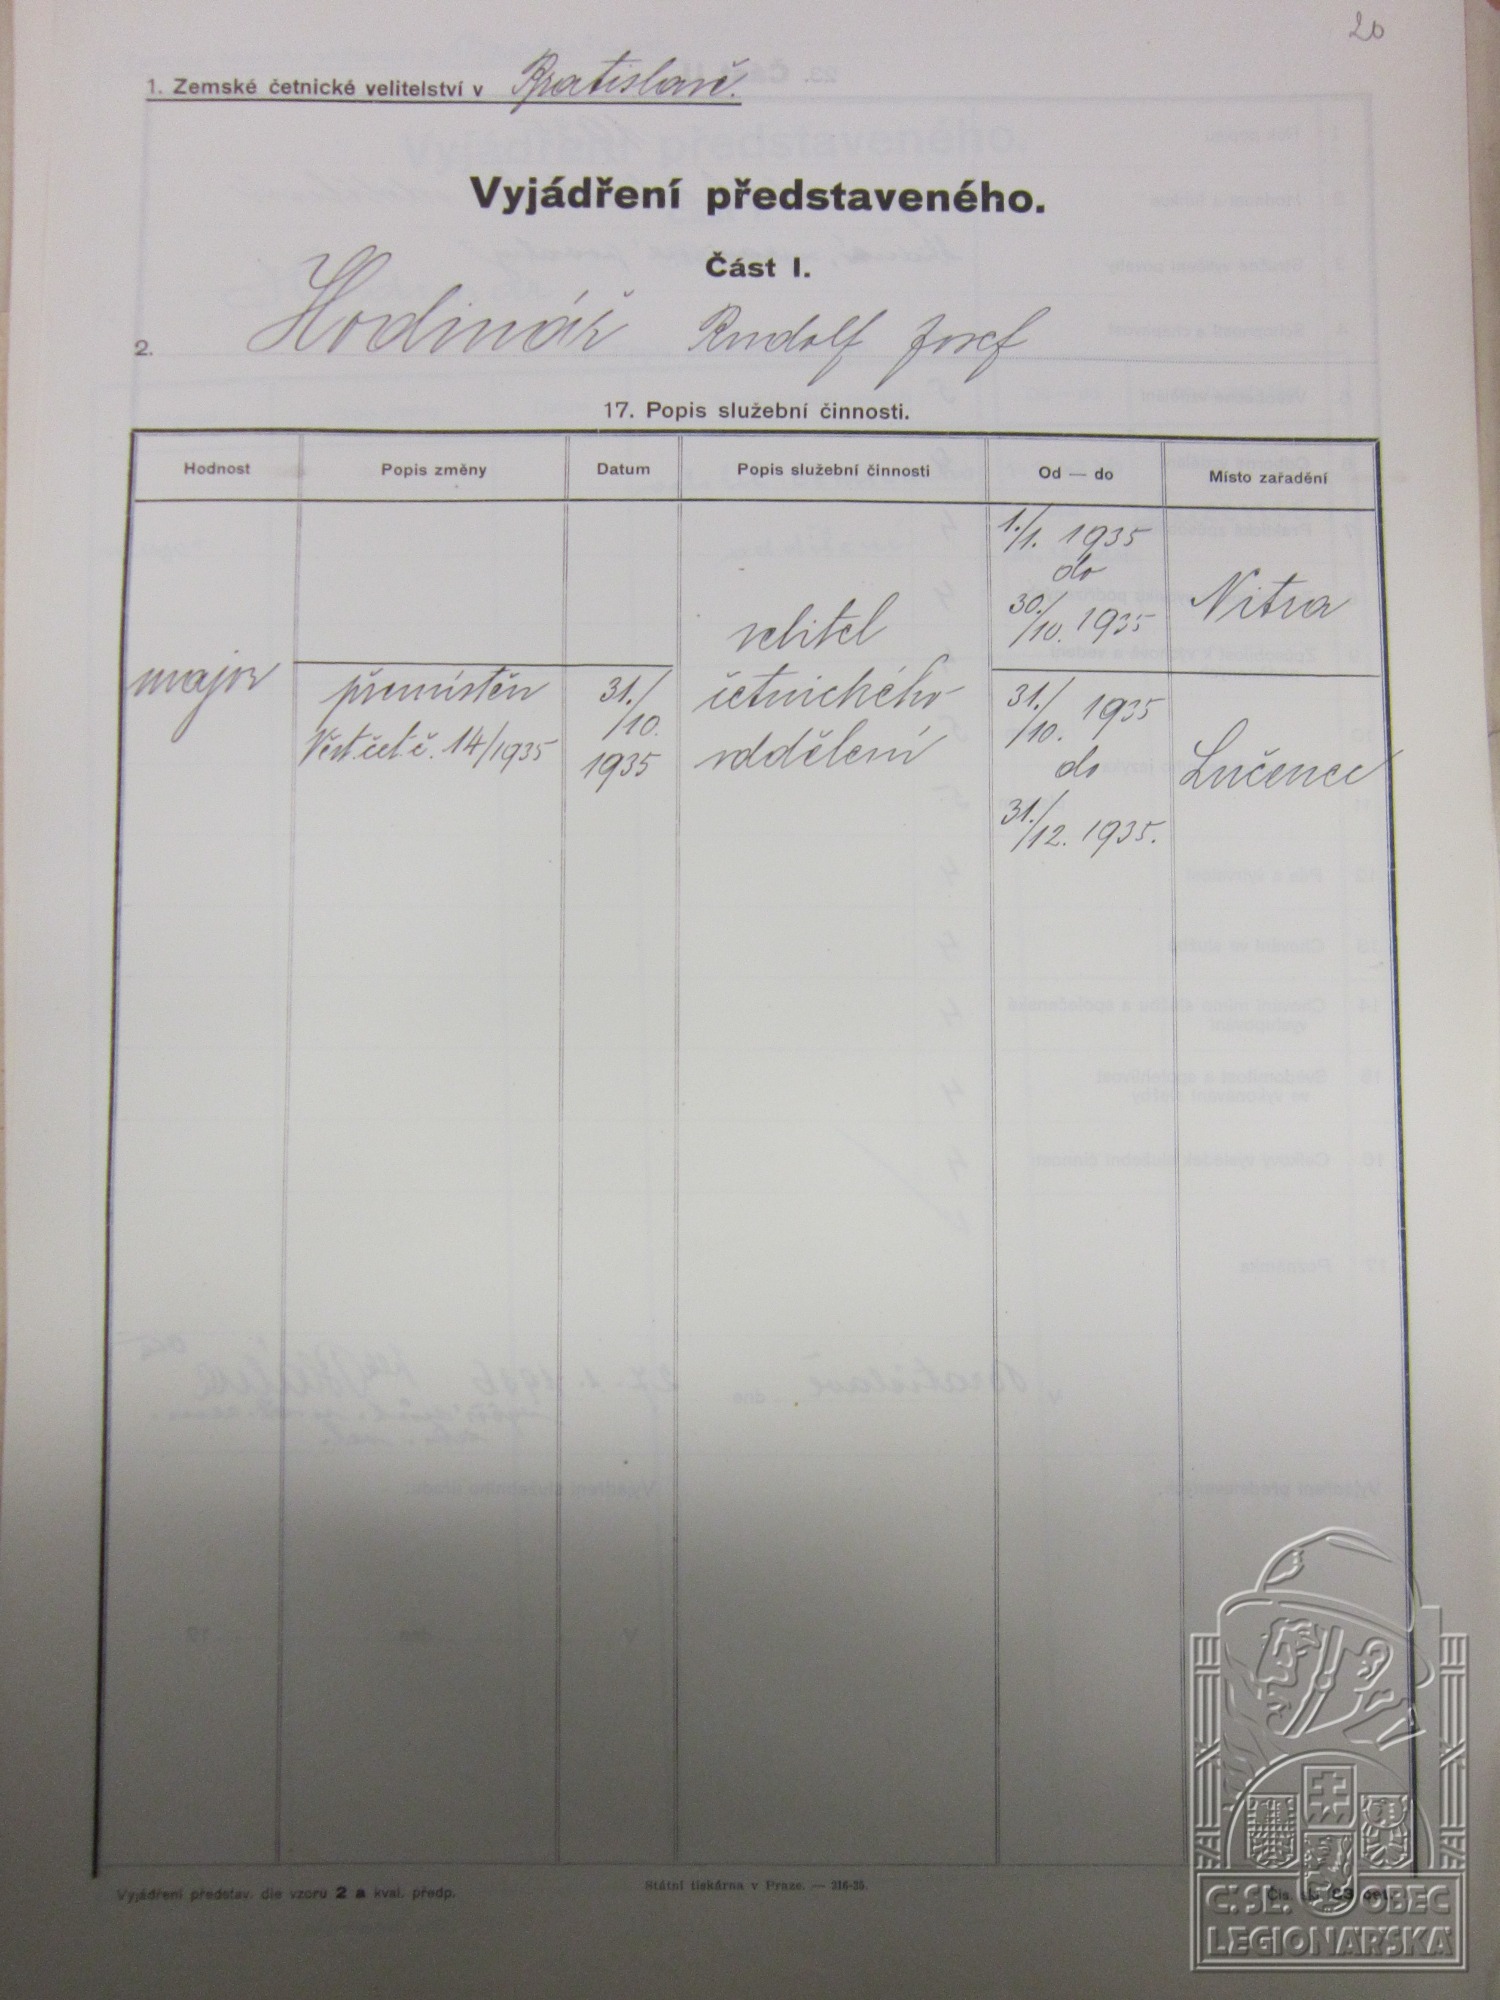 20
1. Zemské četnické velitelství v Bratislavě.
Vyjádření představeného.
Část I.
2. Hodinář Rudolf Josef
17. Popis služební činnosti.
Hodnost Popis změny Datum Popis služební činnosti Od — do Místo zařadění
1./1. 1935
do
30./10. 1935 Nitra
velitel
major přemístěn 31./10. četnického 31./10. 1935
Věst.čet.č. 14/1935 1935 oddělení do Lučenec
31./12. 1935.
Vyjádření představ. dle vzoru 2 a kval. předp.
Státní tiskárna v Praze. — 316-35.
Čís. skl.
Č.SL. OBEC
LEGIONÁŘSKÁ